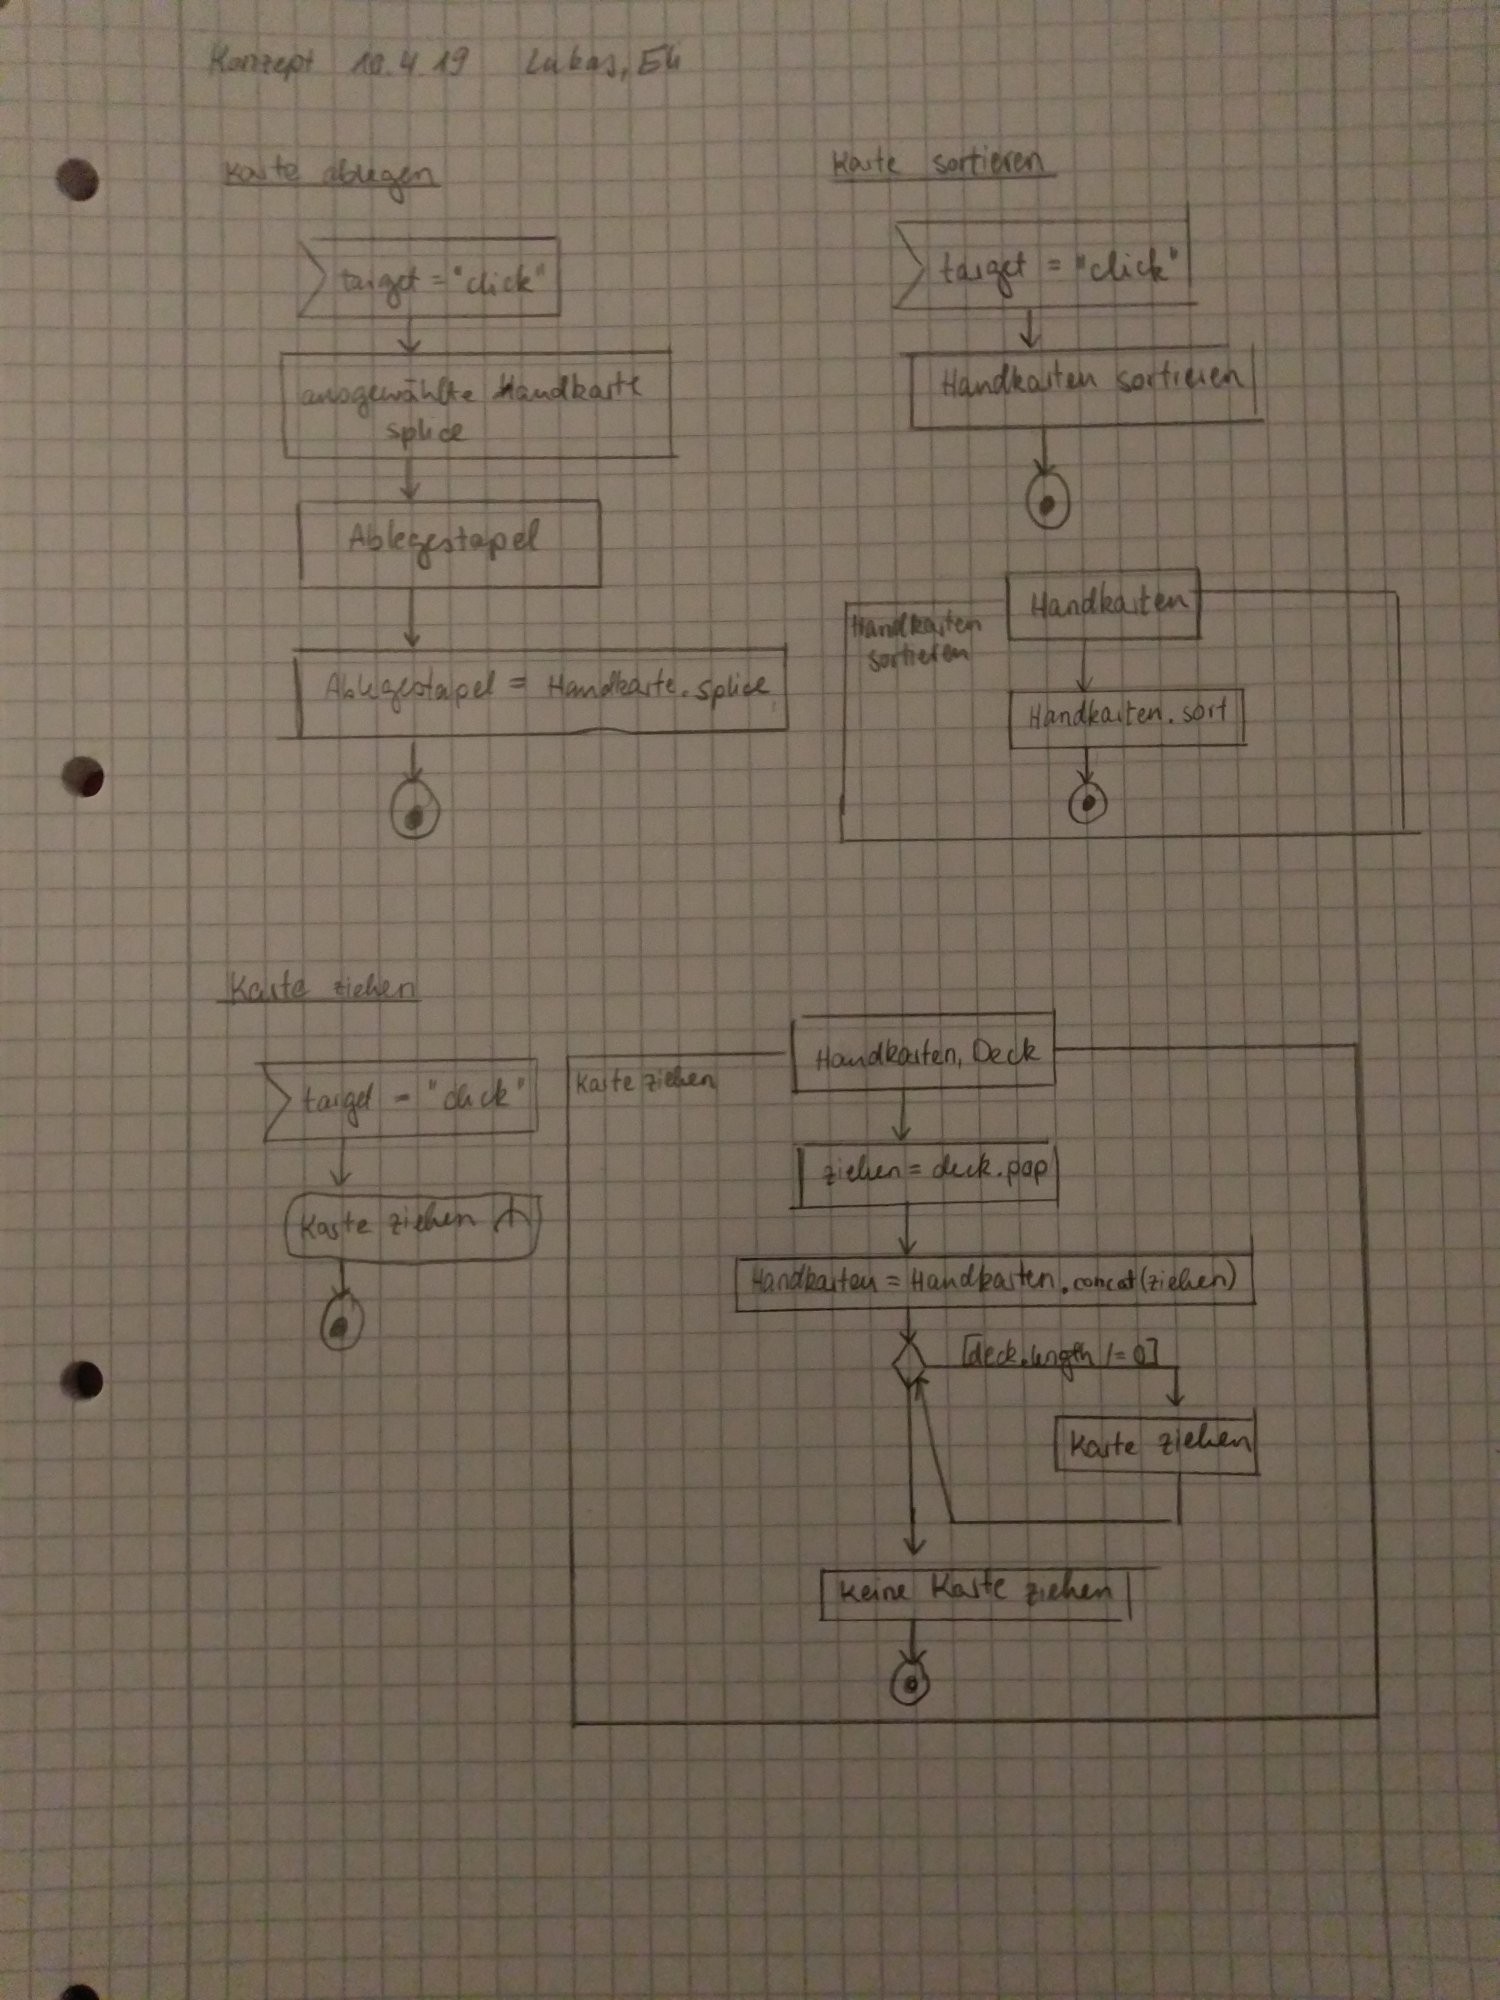 Konzept 10.4.19 Lukas,
Karte ablegen
target = "click"
ausgewählte Handkarte
splice
Ablegestapel
Ablegestapel = Handkarte.splice
Karte sortieren
target = "click"
Handkarten sortieren
Handkarten
sortieren
Handkarten
Handkarten.sort
Karte ziehen
target = "click"
Karte ziehen
Karte ziehen
Handkarten, Deck
ziehen = deck.pop
Handkarten = Handkarten.concat(ziehen)
[deck.length != 0]
Karte ziehen
Keine Karte ziehen